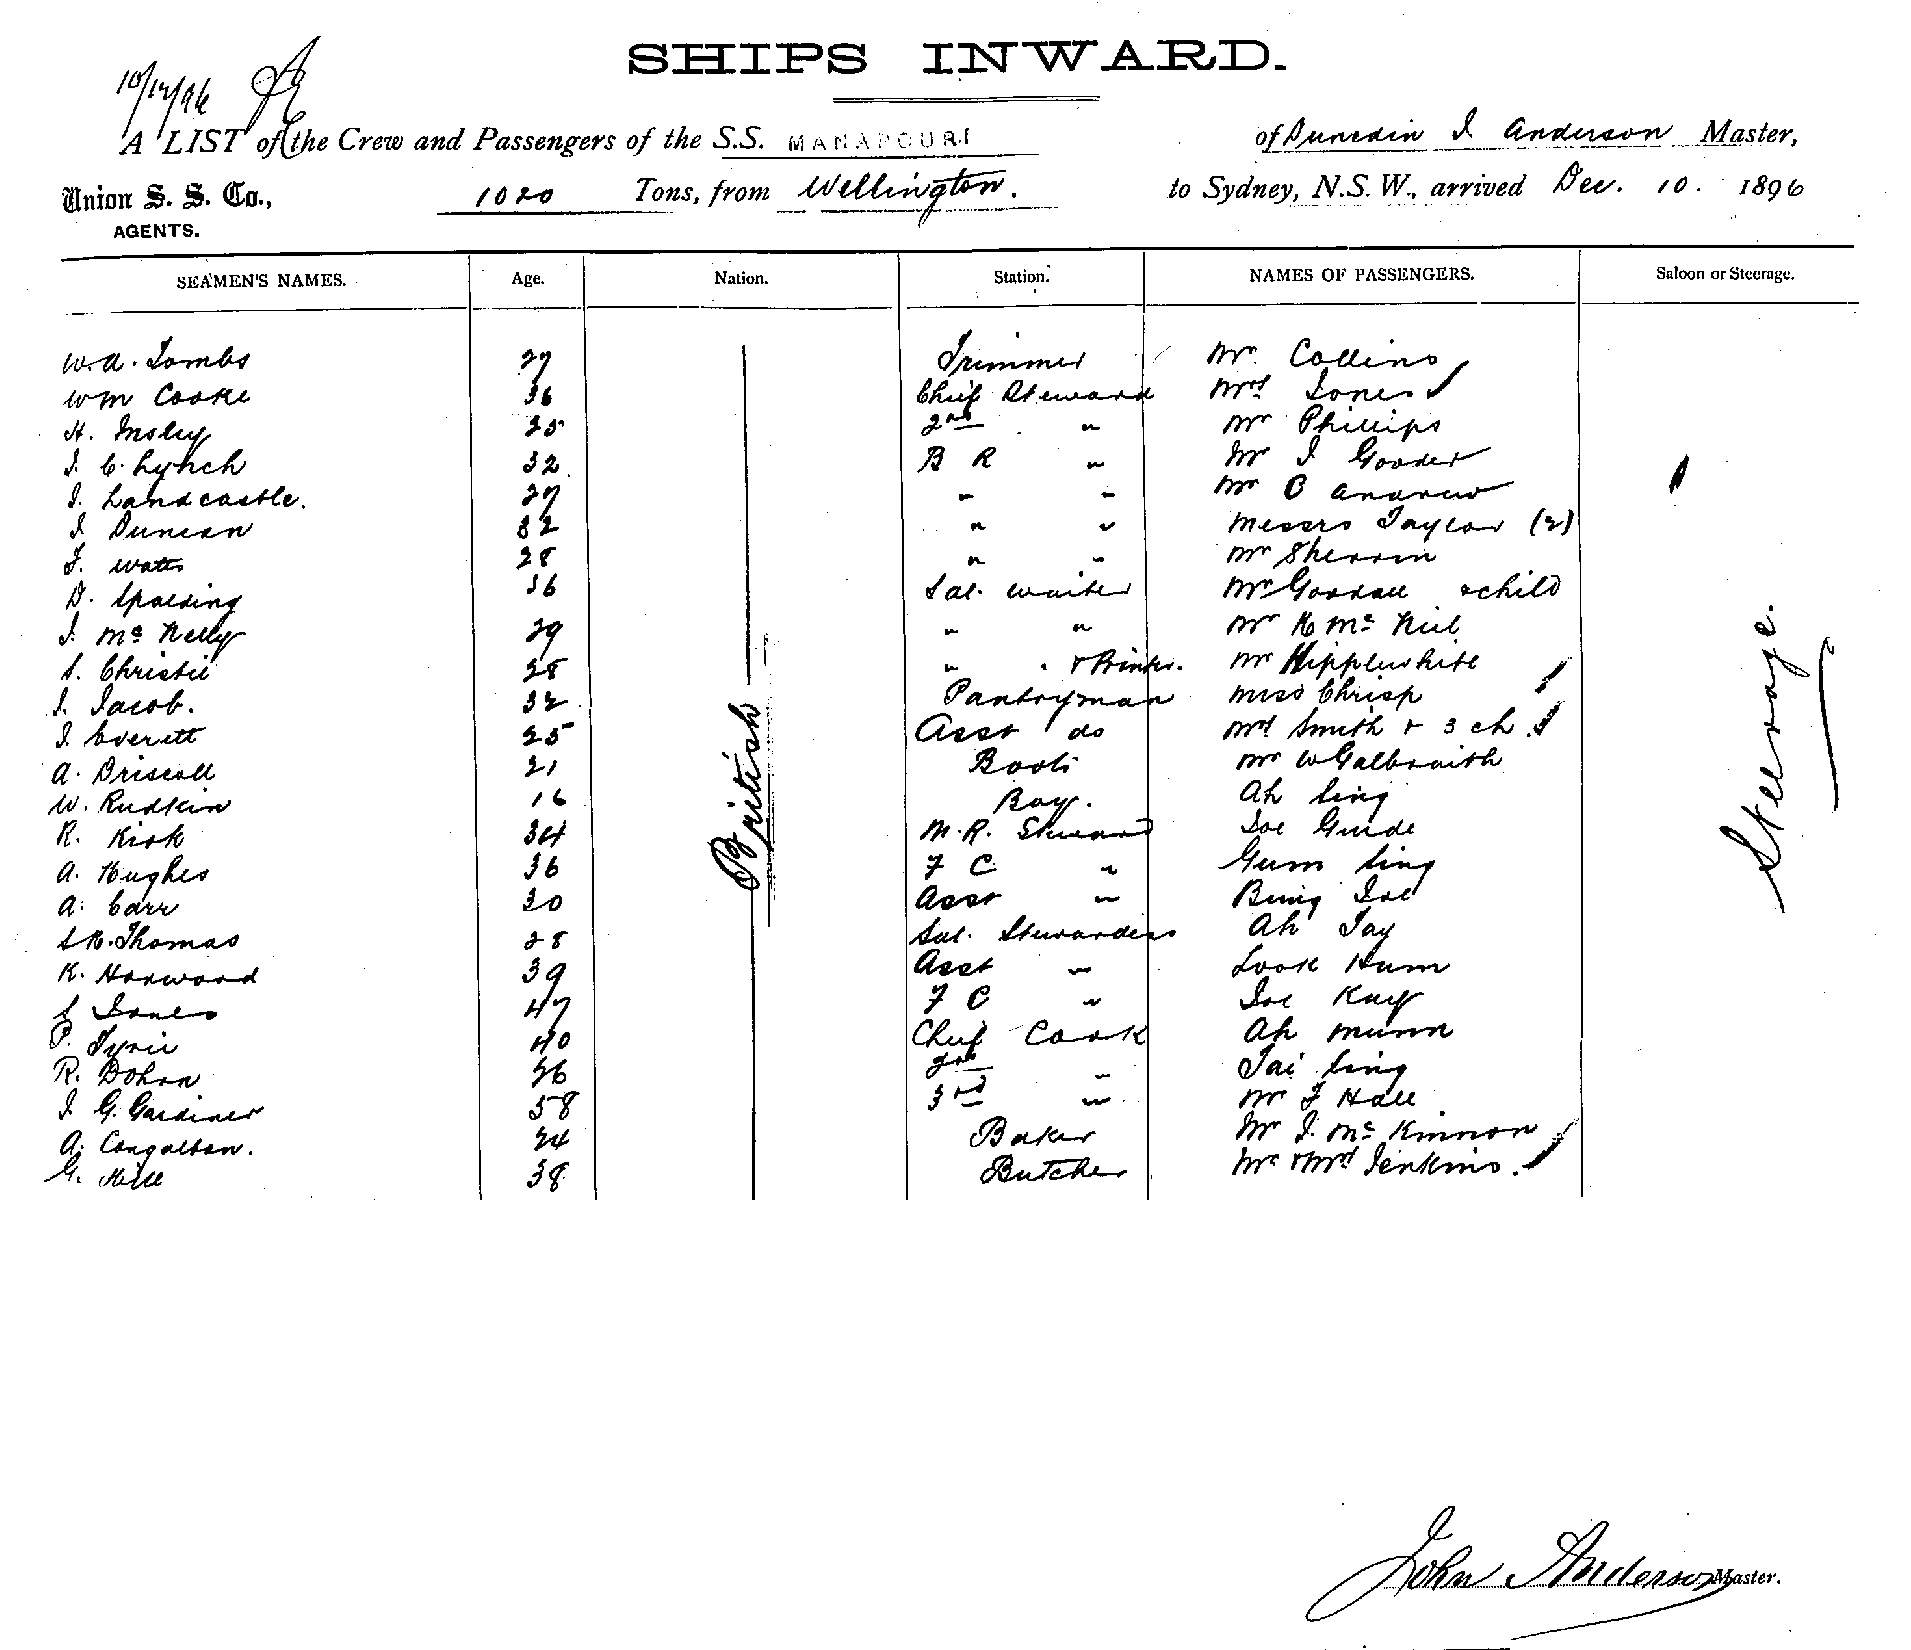 SHIPS INWARD.
10/12/96
A LIST of the Crew and Passengers of the S.S. MANAPOURI of Dunedin J Anderson Master,
Union S. S. Co., 1020 Tons, from Wellington. to Sydney, N.S.W., arrived Dec. 10. 1896
AGENTS.
SEAMEN'S NAMES. Age. Nation. Station. NAMES OF PASSENGERS. Saloon or Steerage.
W. A. Tombs 27 Trimmer Mr Collins
Wm Cooke 36 Chief Steward Mrs Jones
H. Insley 25 2nd " Mr Phillips
J. C. Lynch 32 B R " Mr J Gooder
J. Landcastle. 27 " " Mr C Andrew
J. Duncan 32 " " Messrs Taylor (2)
F. Watts 28 " " Mr Sherrin
D. Spalding 36 Sal. Waiter Mrs Goodall & child
J. McNelly 29 " " Mr H McNeil
S. Christie 28 " " & Printer. Mr Hipplewhite
J. Jacob. 32 Pantryman Miss Chrisp
J. Everett 25 Asst do Mrs Smith & 3 ch.
A. Driscoll 21 Boots Mr W Galbraith
W. Rudkin 16 Boy. Ah Sing
R. Kirk 34 M. R. Steward Joe Guide
A. Hughes 36 F C " Gum Sing
A. Carr 30 Asst " Bing Joe
S R. Thomas 28 Sal. Stewardess Ah Tay
K. Horwood 39 Asst " Look Hum
Jones 47 F C " Joe Kay
P. Tyrie 40 Chief Cook Ah Munn
R. Dohrn 26 2nd " Tai Sing
J. G. Gardiner 58 3rd " Mr F Hall
A. Congalton. 24 Baker Mr J. McKinnon
G. Hill 38 Butcher Mr & Mrs Jenkins.
British
Steerage.
John Anderson Master.